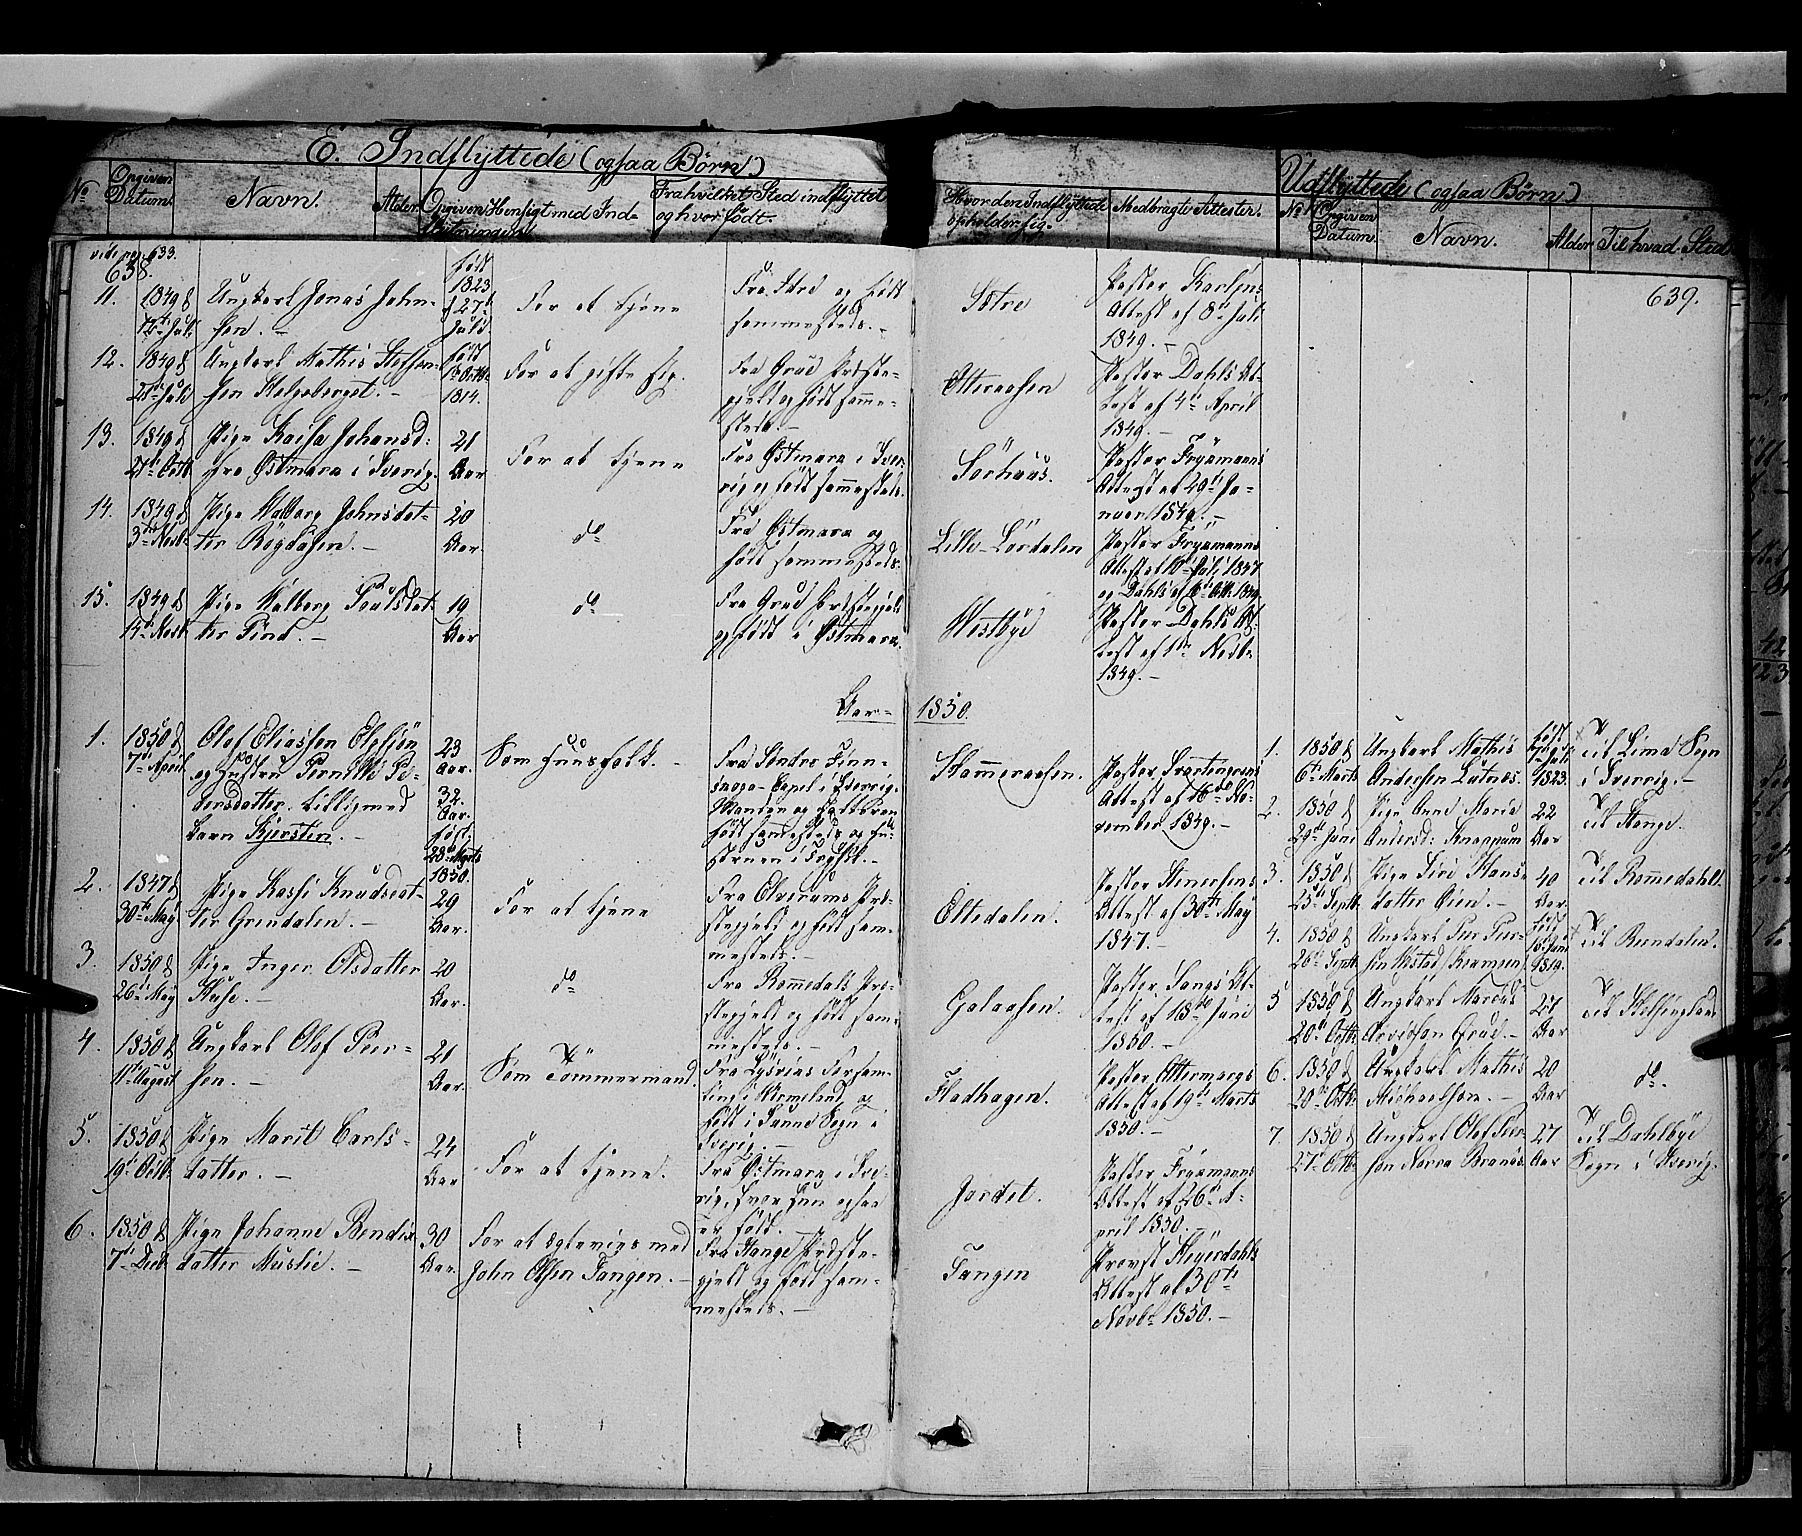 E. Indflyttede (ogsaa Børn)
No
Opgiven Datum.
Navn.
Alder
Opgiven Hensigt med Ind-
flytningen
Fra hvilket Sted indflyttet
og hvor født.
Hvor den Indflyttede
opholder sig.
Medbragte Attester.
Udflyttede (ogsaa Børn)
No
Opgiven
Datum.
Navn.
Alder
Til hvad Sted
vide pag. 633.
638.
639.
11.
1849 d
12te Juli
Ungkarl Jonas John-
sen. –
født
1823
27
Juli
For at tjene
Fra Idre og født
sammesteds. –
Østre
Pastor
Attest af 8de Juli
1849. –
12.
1849 d
28de Juli
Ungkarl Mathis Steffen-
sen
født
1814.
For at gifte sig.
Fra Grue Præste-
gjeld og født samme-
steds. –
Otteraasen
Pastor Dahls At-
test af 4de April
1849. –
13.
1849 d
21de Octb
Pige Kaisa Johansd:
fra Østmara i Sverig.
21
Aar
For at tjene
Fra Østmara i Sver-
rig og født sammesteds.
Sørhuus.
Pastor Fryxmanns
Attest af 29de Ja-
nuar 1849. –
14.
1849 d
3die Novb
Pige Walborg Johnsdat-
ter Bogdasen. –
20
Aar
do
Fra Østmara og
født sammesteds.
Lille-Lørdalen
Pastor Fryxmanns
Attest af 10de Juli 1847
og Dahls af 1849.
15.
1849 d
14de Novb
Pige Walborg Paulsdat-
ter Find. –
19
Aar
do
Fra Grue Præstegjeld
og født i Østmara.
Westbye
Pastor Dahls At-
test af 1ste Novb
1849. –
Aar – 1850.
1.
1850 d
7de April
Olof Eliassen
og Hustru Pernille Pe-
dersdatter. Tilligemed
Barn Kjersten. –
23
Aar.
32.
Aar.
født
28de Marts
1850.
Som Huusfolk. –
Fra Søndre Finn-
skoga-Capel i Sverrig.
Manden og Datteren
født sammesteds og Hu-
struen i Trysil. –
Skammeraasen.
Pastor
Attest af 16de No-
vember 1849. –
2.
1847 d
30te May
Pige Kersti Knudsdat-
ter Grendalen. –
29
Aar.
For at tjene
Fra Elverums Præ-
stegjeld og født sam-
mesteds. –
Eltdalen.
Pastor Steinersens
Attest af 30te May
1847. –
3.
1850 d
26de May
Pige Inger Olsdatter
Huse. –
20
Aar.
do
Fra Romedals Præ-
stegjeld og født sam-
mesteds. –
Galaasen.
Pastor Bangs At-
test af 18de Juni
1850. –
4.
1850 d
11te August
Ungkarl Olof Peer-
sen. –
21
Aar.
Som Tømmermand.
Fra Lysviks Forsam-
ling i Wermeland, og
født i Sunne Sogn i
Sverig. –
Fladhagen.
Pastor Ottermarks
Attest af 19de Marts
1850. –
5.
1850 d
19de Octb
Pige Marit Carls-
datter. –
24
Aar
For at tjene.
Fra Østmara i Sve-
rig, hvor hun ogsaa
er født. –
Jordet.
Pastor Fryxmanns
Attest af 26de A-
pril 1850. –
6.
1850 d
7de Decb
Pige Johanne Bendix-
datter Muslie. –
30
Aar.
For at ægtevies med
John Olsen Tangen. –
Fra Stange Præste-
gjeld og født sam-
mesteds. –
Tangen
Provst Heyerdahls
Attest af 30te
Novbr 1850. –
1.
1850 d
6te Marts
Ungkarl Mathis
Andersen Lutnæs.
født
7de Juli
1823.
Til Lima Sogn
i Sverrig. –
2.
1850 d
29de Juni
Pige Anne Marie
Andersd: Knappum
22
Aar
Til Stange.
3.
1850 d
25de Septb
Pige Siri Hans-
datter Øien. –
40
Aar.
Til Romedahl.
4.
1850 d
26de Septb
Ungkarl Peer Peer-
sen
født
Juni
1819.
Til Rendalen.
5
1850 d
20de Octb
Ungkarl Marcus
Arvidson Grue. –
27
Aar
Til Helsingland
6.
1850 d
20de Octb
Ungkarl Mathis
Michaelson. –
20
Aar
do.
7.
1850 d
27de Octb
Ungkarl Olof Peer-
sen Norra Brønæs
27
Aar
Til Dahlbye
Sogn i Sverig.